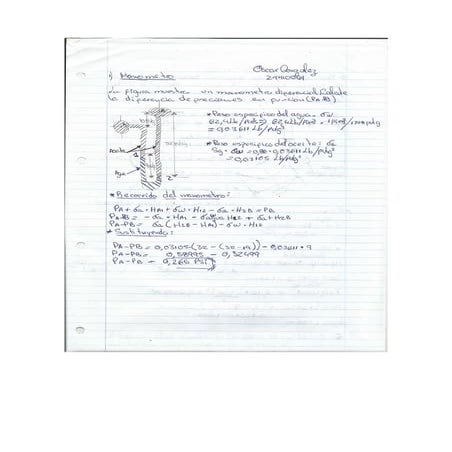 Oscar Gonzalez
1) Manometro
La figura muestra un manometro diferencial. Calcule
la diferencia de presiones en puncion (PA-PB)
* Peso especifico del agua = σw
62,4 Lb/Pie³ => 62,4 Lb/Pie³ =
= 0,03611 Lb/Pulg³
* Peso especifico del aceite: σa
Sg · σw = 0,86 · 0,03611 Lb/Pulg³
= 0,03105 Lb/Pulg³
Aceite
Agua
* Recorrido del manometro:
PA + σa · HA1 + σw · H12 - σa · H2B = PB
PA-PB = - σa · HA1 - σw H12 + σa · H2B
PA-PB = σa (H2B - HA1) - σw · H12
* Sustituyendo:
PA-PB = 0,03105 (32 - (32-19)) - 0,03611 · 9
PA-PB = 0,58995 - 0,32499
PA-PB = 0,265 PSI